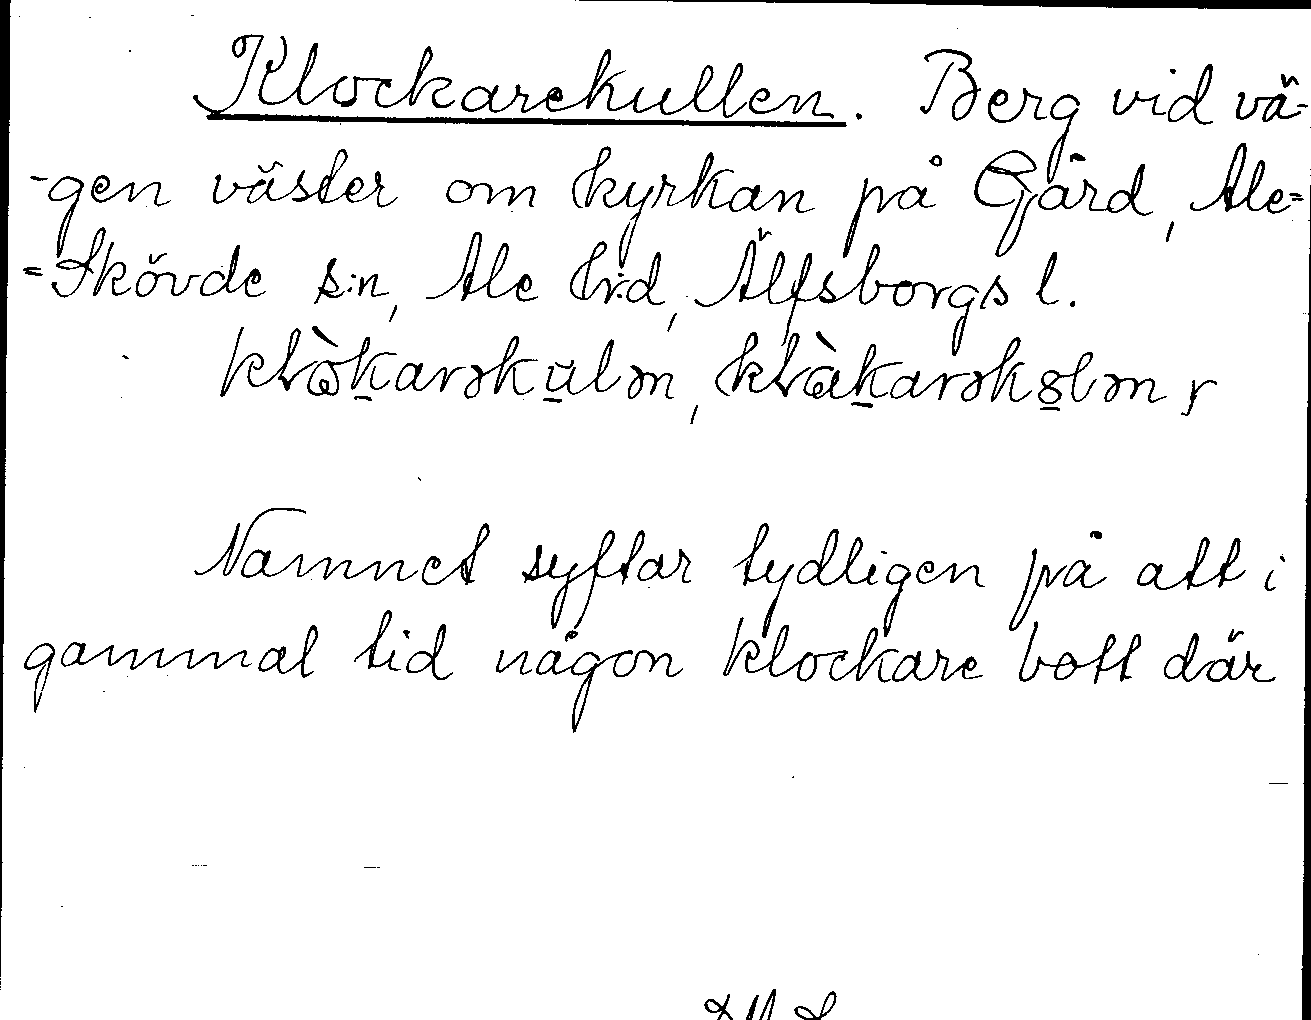 Klockarekullen. Berg vid vä-
-gen väster om kyrkan på Gård, Ale=
=Skövde s:n, Ale h:d, Älfsborgs l.
Namnet syftar tydligen på att i
gammal tid någon klockare bott där